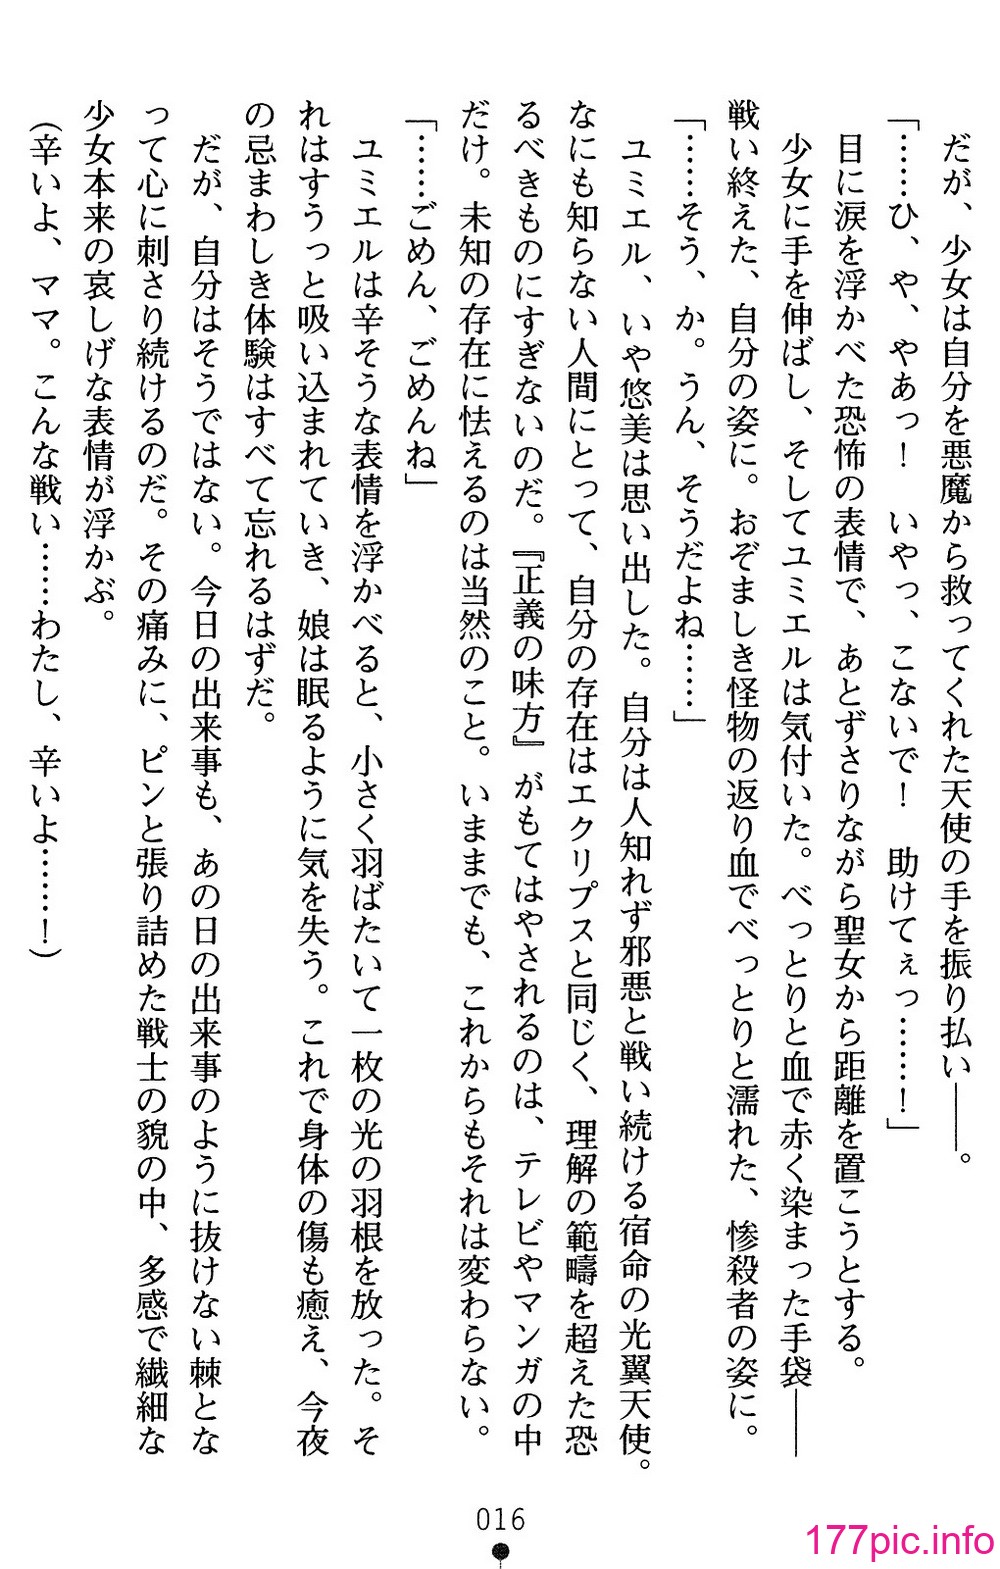 だが、少女は自分を悪魔から救ってくれた天使の手を振り払い――。
「……ひ、や、やあっ！　いやっ、こないで！　助けてぇっ……！」
　目に涙を浮かべた恐怖の表情で、あとずさりながら聖女から距離を置こうとする。
　少女に手を伸ばし、そしてユミエルは気付いた。べっとりと血で赤く染まった手袋――
戦い終えた、自分の姿に。おぞましき怪物の返り血でべっとりと濡れた、惨殺者の姿に。
「……そう、か。うん、そうだよね……」
　ユミエル、いや悠美は思い出した。自分は人知れず邪悪と戦い続ける宿命の光翼天使。
なにも知らない人間にとって、自分の存在はエクリプスと同じく、理解の範疇を超えた恐
るべきものにすぎないのだ。『正義の味方』がもてはやされるのは、テレビやマンガの中
だけ。未知の存在に怯えるのは当然のこと。いままでも、これからもそれは変わらない。
「……ごめん、ごめんね」
　ユミエルは辛そうな表情を浮かべると、小さく羽ばたいて一枚の光の羽根を放った。そ
れはすうっと吸い込まれていき、娘は眠るように気を失う。これで身体の傷も癒え、今夜
の忌まわしき体験はすべて忘れるはずだ。
　だが、自分はそうではない。今日の出来事も、あの日の出来事のように抜けない棘とな
って心に刺さり続けるのだ。その痛みに、ピンと張り詰めた戦士の貌の中、多感で繊細な
少女本来の哀しげな表情が浮かぶ。
（辛いよ、ママ。こんな戦い……わたし、辛いよ……！）
016
177pic.info